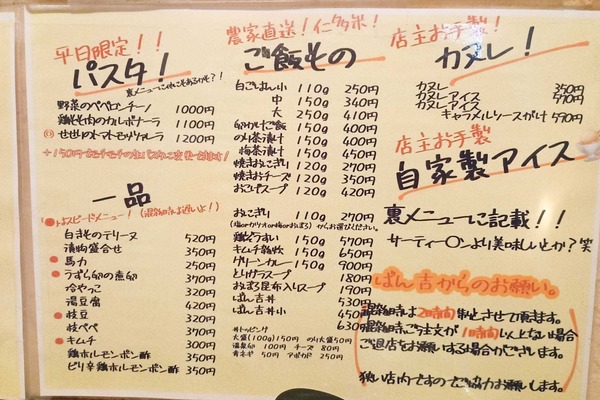 平日限定!!
パスタ!
裏メニューに他にもあるかも?!
野菜のペペロンチーノ 1000円
鶏もも肉のカルボナーラ 1100円
せせりのトマトモッツァレラ 1200円
一品
スピードメニュー!
白きものテリーヌ 520円
漬物盛合せ 350円
馬力
うずら卵の煮卵
冷やっこ 320円
湯豆腐 420円
枝豆 320円
枝ペペ 370円
キムチ 300円
鶏ホルモンポン酢 350円
ピリ辛鶏ホルモンポン酢 350円
農家直送!仁多米!
ご飯もの
白ごはん小 110g 250円
中 150g 340円
大 200g 410円
卵かけご飯 150g 400円
のり茶漬け 150g 400円
梅茶漬け 150g 410円
焼きおにぎり 120g 270円
焼きおチーズ 120g 350円
おこげスープ 120g 420円
おにぎり 110g 270円
からお選びください。
鶏ぞうすい 150g 570円
キムチ雑炊 150g 650円
グリーンカレー 150g 900円
とりガラスープ 180円
おぼろ昆布入りスープ 190円
ぱん吉丼 530円
ぱん吉丼小 450円
630円
#トッピング
大盛(100g)150円 のり大盛50円
温泉卵 100円 チーズ 80円
青ネギ 50円 アボカド 250円
店主お手製!
カヌレ!
カヌレ 350円
カヌレアイス 570円
カヌレアイス
キャラメルソースがけ 590円
店主お手製
自家製アイス
裏メニューに記載!!
サーティー〇ンより美味しいとか?笑
ぱん吉からのお願い。
混雑時は2時間制とさせて頂きます。
混雑時ご注文が1時間以上ない場合
ご退店をお願いする場合がございます。
狭い店内ですのでご協力お願いします。